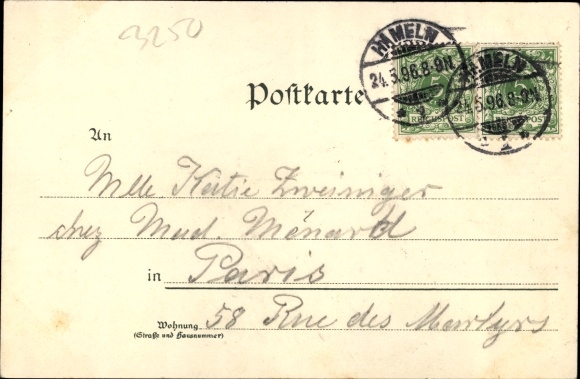 3250
HAMELN
24.5.96.8-9N.
HAMELN
24.5.96.8-9N.
5
REICHSPOST
REICHSPOST
Postkarte
An
Mlle Katie Zweiniger
chez Mad. Ménard
in Paris
Wohnung 58 Rue des Martyrs
(Straße und Hausnummer)